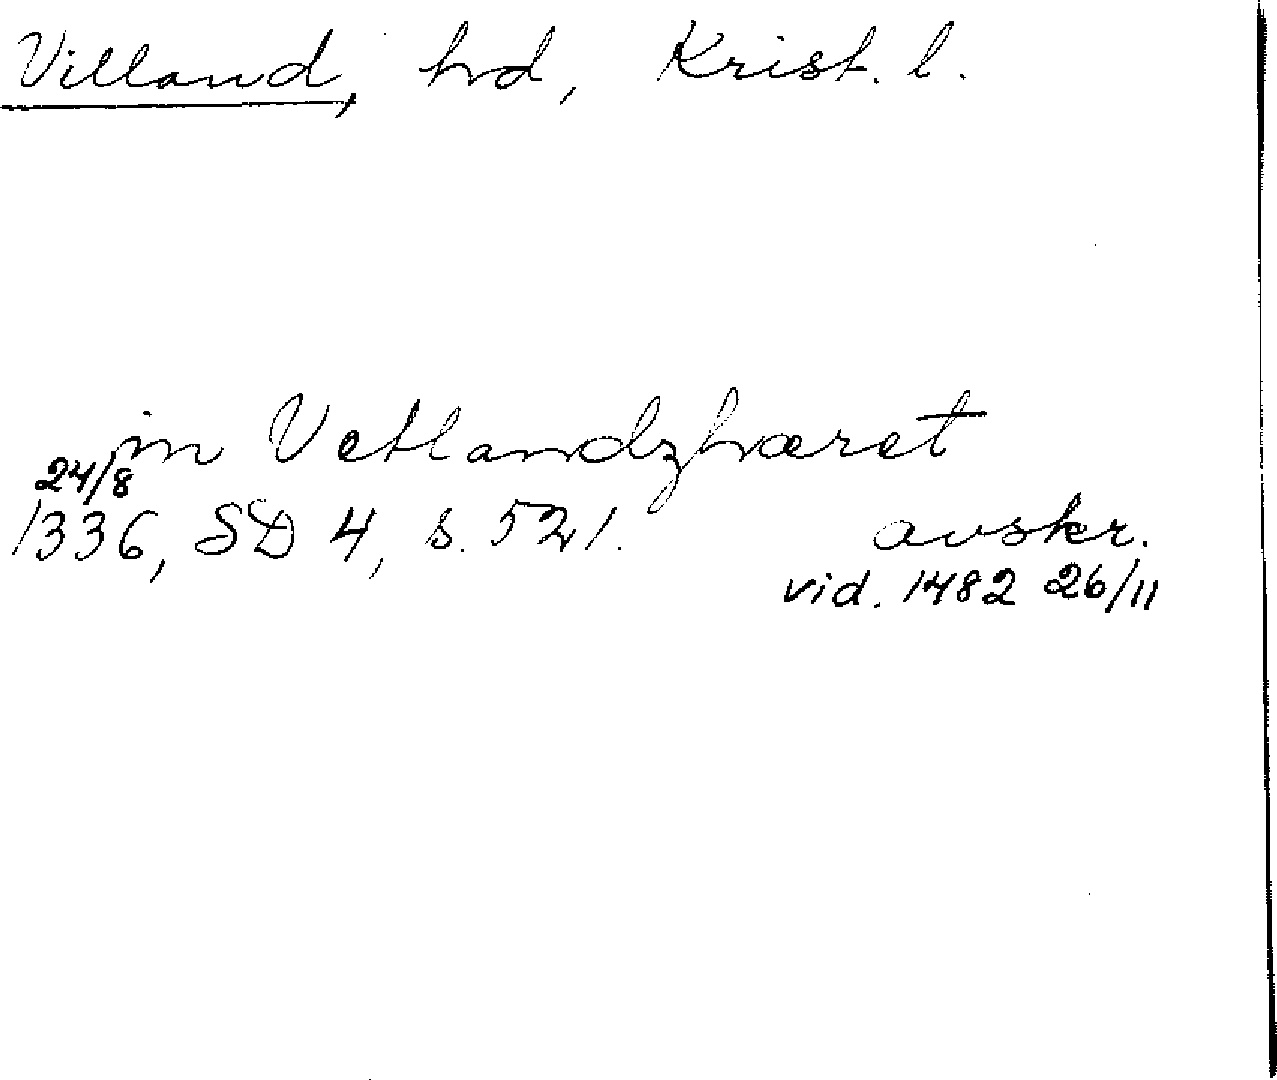 Villand, hd, Krist. l.
in Vetlandzhæret
24/8
1336, SD 4, s. 521. avskr.
vid. 1482 26/11